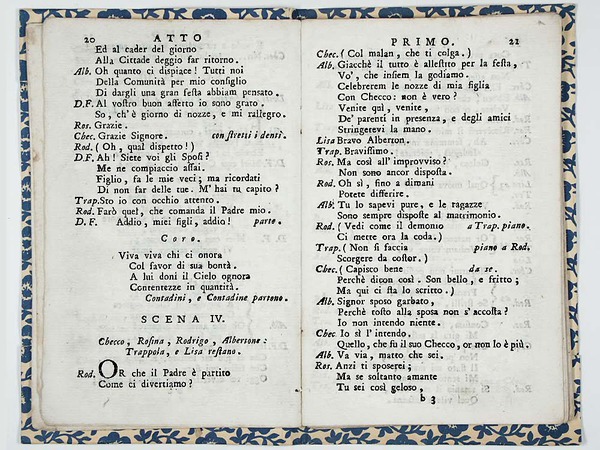 20 ATTO
Ed al cader del giorno
Alla Cittade deggio far ritorno.
Alb. Oh quanto ci dispiace! Tutti noi
Della Comunità per mio consiglio
Di dargli una gran festa abbiam pensato.
D.F. Al vostro buon affetto io sono grato.
So, ch'è giorno di nozze, e mi rallegro.
Ros. Grazie.
Chec. Grazie Signore. con stretti i denti.
Rod. ( Oh, qual dispetto! )
D.F. Ah! Siete voi gli Sposi?
Me ne compiaccio assai.
Figlio, fa le mie veci; ma ricordati
Di non far delle tue. M'hai tu capito?
Trap. Sto io con occhio attento.
Rod. Farò quel, che comanda il Padre mio.
D. F. Addio, miei figli, addio! parte.
Coro.
Viva viva chi ci onora
Col favor di sua bontà.
A lui doni il Cielo ognora
Contentezze in quantità.
Contadini, e Contadine partono.
SCENA IV.
Checco, Rosina, Rodrigo, Albertone:
Trappola, e Lisa restano.
Rod. OR che il Padre è partito
Come ci divertiamo?
PRIMO. 21
Chec. ( Col malan, che ti colga. )
Alb. Giacchè il tutto è allestito per la festa,
Vo', che insiem la godiamo.
Celebrerem le nozze di mia figlia
Con Checco: non è vero?
Venite quì, venite,
De' parenti in presenza, e degli amici
Stringetevi la mano.
Lisa Bravo Alberton.
Trap. Bravissimo.
Ros. Ma così all' improvviso?
Non sono ancor disposta.
Rod. Oh sì, fino a dimani
Potete differire.
Alb. Tu lo sapevi pure, e le ragazze
Sono sempre disposte al matrimonio.
Rod. ( Vedi come il demonio a Trap. piano.
Ci mette ora la coda. )
Trap. ( Non si faccia piano a Rod.
Scorgere da costor. )
Chec. ( Capisco bene da se.
Perchè dicon così. Son bello, e fritto;
Ma qui ci sta lo scritto. )
Alb. Signor sposo garbato,
Perchè tosto alla sposa non s'accosta?
Io non intendo niente.
Chec Io sì l' intendo.
Quello, che fu il suo Checco, or non lo è più.
Alb. Va via, matto che sei.
Ros. Anzi ti sposerei;
Ma se soltanto amante
Tu sei così geloso,
b 3